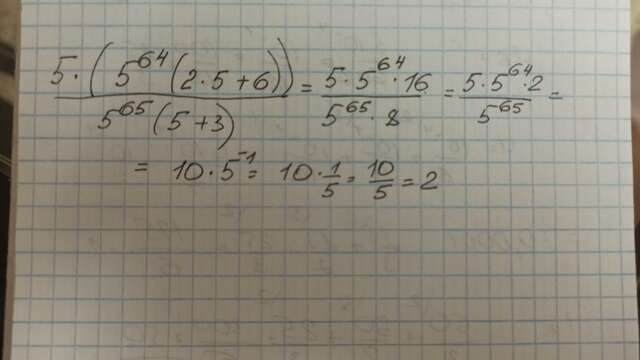 5·(5^64(2·5+6)) / 5^65(5+3) = 5·5^64·16 / 5^65·8 = 5·5^64·2 / 5^65 =
= 10·5^-1 = 10·1/5 = 10/5 = 2